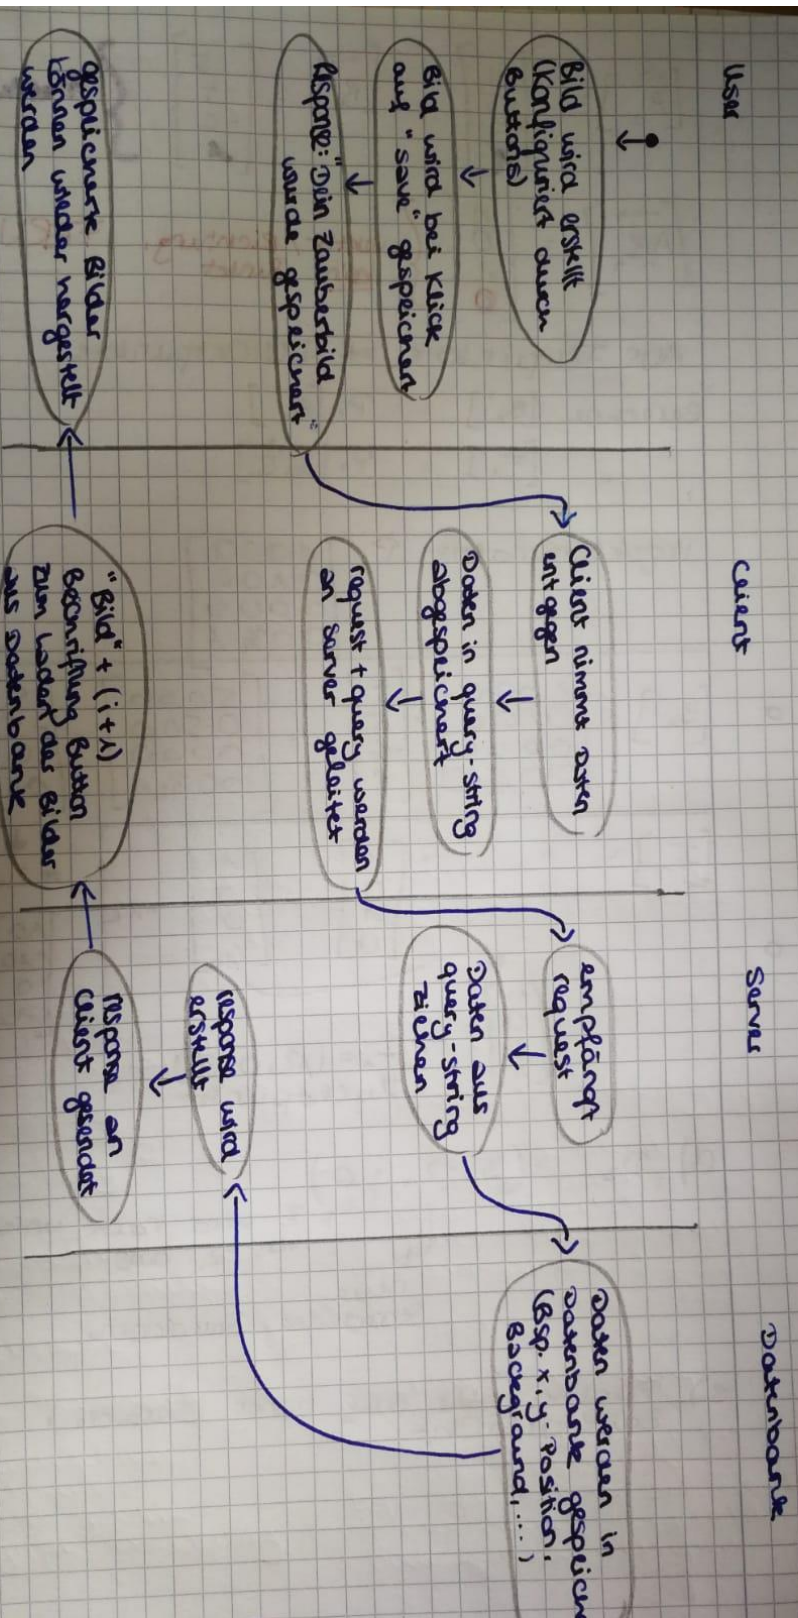 User
Bild wird erstellt
(Konfiguriert durch
Buttons)
Bild wird bei Klick
auf "save" gespeichert
Response: "Dein Zauberbild
wurde gespeichert"
gespeicherte Bilder
können wieder hergestellt
werden
Client
Client nimmt Daten
entgegen
Daten in query-string
abgespeichert
request + query werden
an Server geleitet
"Bild" + (i+1)
Beschriftung Button
zum laden der Bilder
aus Datenbank
Server
empfängt
request
Daten aus
query-string
ziehen
response wird
erstellt
response an
Client gesendet
Datenbank
Daten werden in
Datenbank gespeich
(Bsp. x, y-Position,
Background, ...)